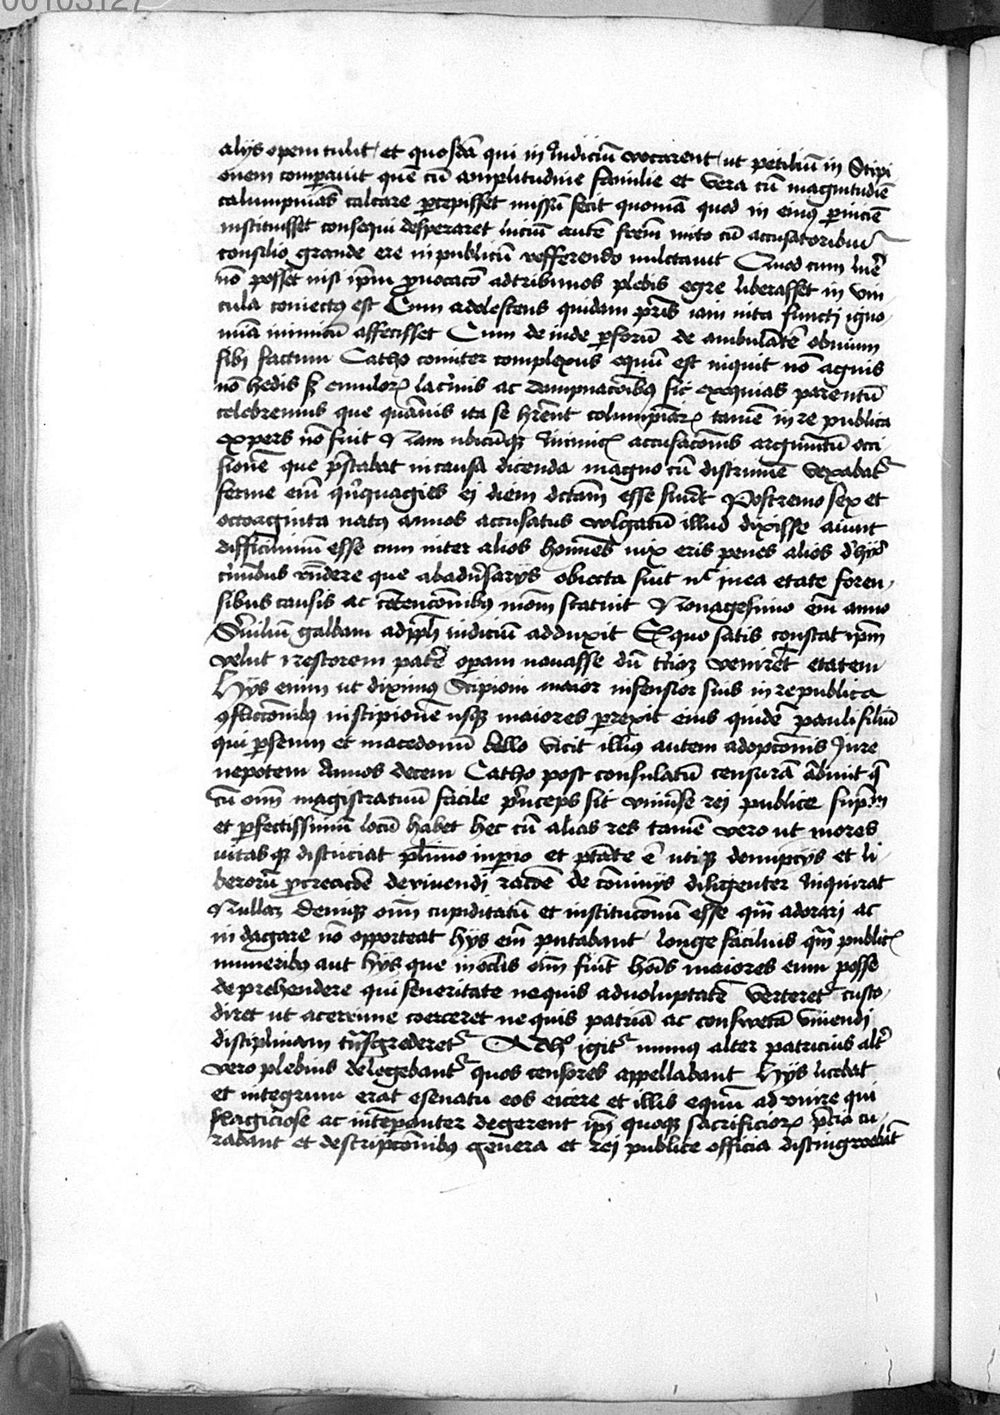 00103127
alijs opem tulit / et quosdā qui in Judiciū vocarent / ut petiliū in Scipi
onem comparauit quē cū amplitudinie familie et vera cū magnitudiē
calumpnias calcare percepisset missū fecit quoniā quod in eius perniciē
instituisset consequi desperaret luciū autē frēm inito cū accusatoribus
consilio grande ere in publicū refferendo mlctauit Quod cum luē
nō posset nisi ip̄m prouocacō ad tribunos plebis egre liberasset in vin
cula coniectus est Cum adolestens quidam pr̄is iam uita functi igno
miā inimicū affecisset Cum de inde per forū de ambulātē obuium
sibi factum Catho comiter complexus equū est inquit nō agnis
nō hedis sꝫ emuloꝝ lacrimis ac dampnacōibus sic exequias parentū
celebremus que quāuis ita se hr̄ent columpniaꝝ tamē in re publica
expers nō fuit Nam ubicūqꝫ Inimicꝝ accusacōnis argumētū occi
sionē que prestabat in causa dicenda magno cū discrimīe vexabatur
ferme enī quīquagies ei diem dictam esse fuūt Postremo sex et
octoaginta natus annos accusatus volgatū illud dixisse aiunt
difficilimū esse cum inter alios homīes vix eris penes alios
criminibus rn̄dere que ab aduersarijs obiecta sint nec in ea etate foren
sibus causis ac cōtencōnibus modum statuit Nonagesimo em̄ anno
Seruiliū galbam ad pplī iudiciū adduxit Ex quo satis constat ip̄m
velut nestorem patrē operam nauasse dū terciaꝫ venirēt etatem
Hijs enim ut diximus Scipioni maior infensior suis in re publica
conflictōnibus in scipionē usqꝫ maiores perrexit eius quidē pauli filiū
qui perseum et macedonū bello vicit illius autem adopcōnis Jure
nepotem Annos decem Catho post consulatū censurā ambiuit quē
cū omī magistratuū facile princeps sit vniuerse rei publice supremū
et perfectissimū locū habet hec cū alias res tamē vero ut mores
uitas qꝫ disticiat plīmo inperio et ptāte ē utiqꝫ de nupcijs et li
berorū procreacōe de viuendi racōe de conuiuijs diligenter inquirat
Nullaꝫ deniqꝫ om̄ cupiditatū et institucōnū esse quā adorari ac
in dagare nō opporteat hijs em̄ putabant / longe facilius quā publicꝭ
muneribus aut hijs que in oclis om̄ fuīt hoīs maiores eum posse
deprehendere qui seueritate ne quis ad voluptatē verteret custo
diret ut acerrime coerceret ne quis patriā ac consuetā viuendi
disciplinam trāsgrederetur Adhoc igitur unus alter patricius alter
vero plebeius delegebantur quos censores appellabant Hijs licebat
et integrum erat e senatu eos eicere et illis equū ad imire qui
flagiciose ac intēperanter degerent ipī quoqꝫ sacrificioꝝ precia cu
rabant et descripcōnibus genera et rei publice officia distingwebāt